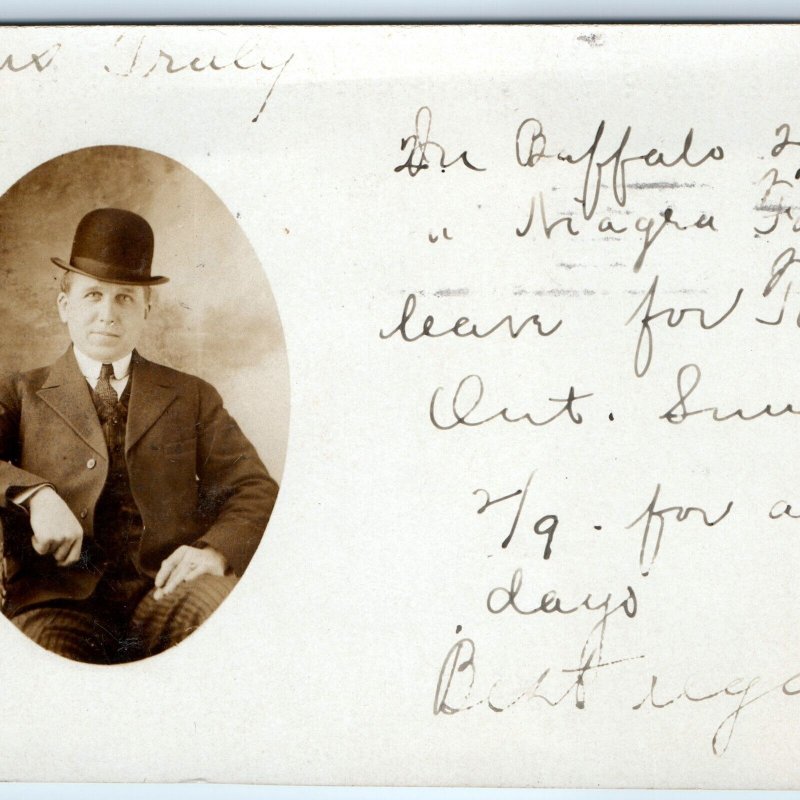 Truly
In Buffalo
" Niagra
leave for
Ont.
2/9. for a
days
Best